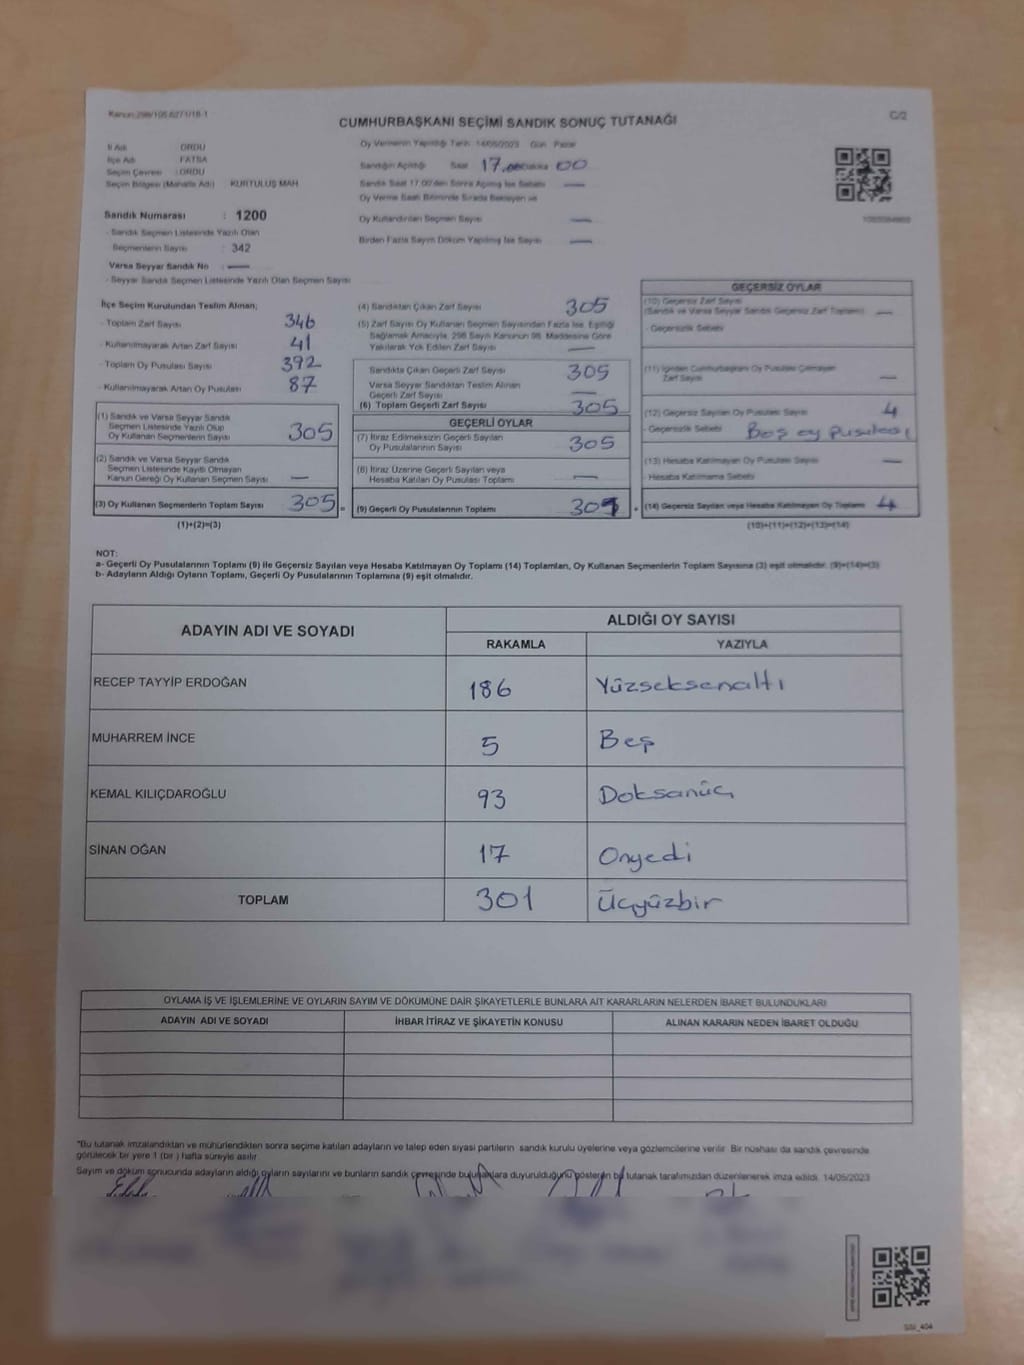 Kanun:298/105.6271/18-1
C/2
CUMHURBAŞKANI SEÇİMİ SANDIK SONUÇ TUTANAĞI
İl Adı : ORDU
İlçe Adı : FATSA
Seçim Çevresi : ORDU
Seçim Bölgesi (Mahalle Adı) KURTULUŞ MAH
Sandık Numarası : 1200
- Sandık Seçmen Listesinde Yazılı Olan
Seçmenlerin Sayısı : 342
Varsa Seyyar Sandık No : —
- Seyyar Sandık Seçmen Listesinde Yazılı Olan Seçmen Sayısı
Oy Vermenin Yapıldığı Tarih: 14/05/2023 Gün Pazar
Sandığın Açıldığı Saat 17.00 Dakika 00
Sandık Saat 17.00'den Sonra Açılmış İse Sebebi —
Oy Verme Saati Bitiminde Sırada Bekleyen ve
Oy Kullandırılan Seçmen Sayısı —
Birden Fazla Sayım Döküm Yapılmış İse Sayısı —
İlçe Seçim Kurulundan Teslim Alınan;
- Toplam Zarf Sayısı 346
- Kullanılmayarak Artan Zarf Sayısı 41
- Toplam Oy Pusulası Sayısı 392
- Kullanılmayarak Artan Oy Pusulası 87
(1) Sandık ve Varsa Seyyar Sandık
Seçmen Listesinde Yazılı Olup
Oy Kullanan Seçmenlerin Sayısı 305
(2) Sandık ve Varsa Seyyar Sandık
Seçmen Listesinde Kayıtlı Olmayan
Kanun Gereği Oy Kullanan Seçmen Sayısı —
(3) Oy Kullanan Seçmenlerin Toplam Sayısı 305 =
(1)+(2)=(3)
(4) Sandıktan Çıkan Zarf Sayısı 305
(5) Zarf Sayısı Oy Kullanan Seçmen Sayısından Fazla İse, Eşitliği
Sağlamak Amacıyla, 298 Sayılı Kanunun 98. Maddesine Göre
Yakılarak Yok Edilen Zarf Sayısı —
Sandıkta Çıkan Geçerli Zarf Sayısı 305
Varsa Seyyar Sandıktan Teslim Alınan
Geçerli Zarf Sayısı —
(6) Toplam Geçerli Zarf Sayısı 305
GEÇERLİ OYLAR
(7) İtiraz Edilmeksizin Geçerli Sayılan
Oy Pusulalarının Sayısı 305
(8) İtiraz Üzerine Geçerli Sayılan veya
Hesaba Katılan Oy Pusulası Toplamı —
(9) Geçerli Oy Pusulalarının Toplamı 301 +
GEÇERSİZ OYLAR
(10) Geçersiz Zarf Sayısı
(Sandık ve Varsa Seyyar Sandık Geçersiz Zarf Toplamı) —
- Geçersizlik Sebebi
(11) İçinden Cumhurbaşkanı Oy Pusulası Çıkmayan
Zarf Sayısı —
(12) Geçersiz Sayılan Oy Pusulası Sayısı 4
- Geçersizlik Sebebi Boş oy pusulası
(13) Hesaba Katılmayan Oy Pusulası Sayısı —
- Hesaba Katılmama Sebebi
(14) Geçersiz Sayılan veya Hesaba Katılmayan Oy Toplamı 4
(10)+(11)+(12)+(13)=(14)
NOT:
a- Geçerli Oy Pusulalarının Toplamı (9) ile Geçersiz Sayılan veya Hesaba Katılmayan Oy Toplamı (14) Toplamları, Oy Kullanan Seçmenlerin Toplam Sayısına (3) eşit olmalıdır. (9)+(14)=(3)
b- Adayların Aldığı Oyların Toplamı, Geçerli Oy Pusulalarının Toplamına (9) eşit olmalıdır.
ADAYIN ADI VE SOYADI ALDIĞI OY SAYISI
RAKAMLA YAZIYLA
RECEP TAYYİP ERDOĞAN 186 Yüzseksenaltı
MUHARREM İNCE 5 Beş
KEMAL KILIÇDAROĞLU 93 Doksanüç
SİNAN OĞAN 17 Onyedi
TOPLAM 301 Üçyüzbir
OYLAMA İŞ VE İŞLEMLERİNE VE OYLARIN SAYIM VE DÖKÜMÜNE DAİR ŞİKAYETLERLE BUNLARA AİT KARARLARIN NELERDEN İBARET BULUNDUKLARI
ADAYIN ADI VE SOYADI İHBAR İTİRAZ VE ŞİKAYETİN KONUSU ALINAN KARARIN NEDEN İBARET OLDUĞU
*Bu tutanak imzalandıktan ve mühürlendikten sonra seçime katılan adayların ve talep eden siyasi partilerin sandık kurulu üyelerine veya gözlemcilerine verilir. Bir nüshası da sandık çevresinde
görülecek bir yere 1 (bir ) hafta süreyle asılır.
Sayım ve döküm sonucunda adayların aldığı oyların sayılarını ve bunların sandık çevresinde bulunanlara duyurulduğunu gösteren bu tutanak tarafımızdan düzenlenerek imza edildi. 14/05/2023
SSI_404